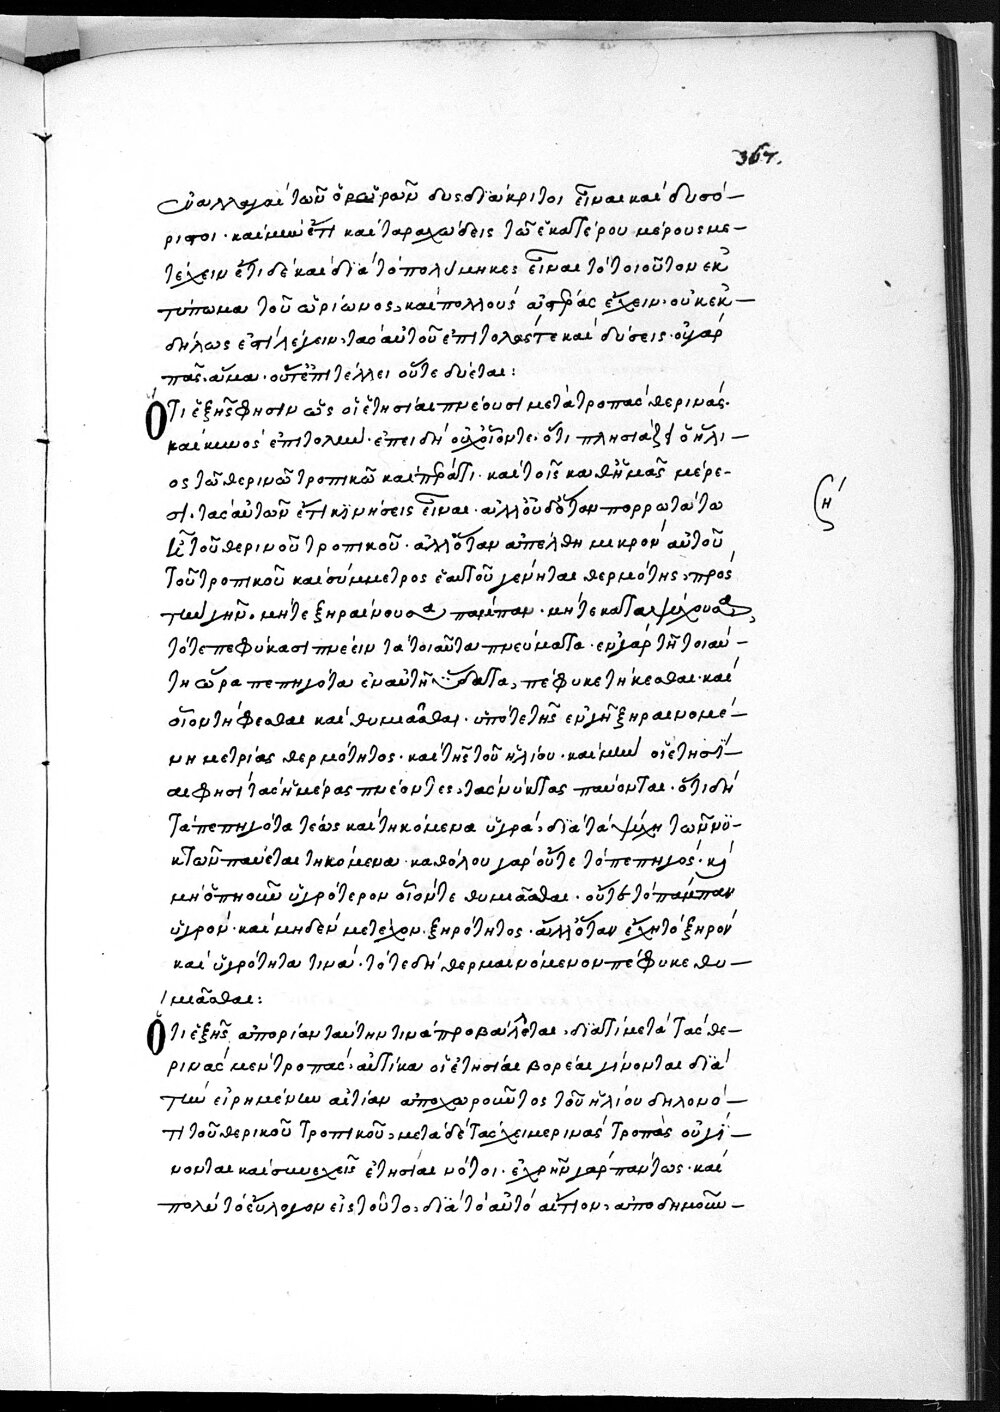 367.
ἐναλλαγαὶ τῶν ὁρῶν ὡρῶν δυσδιάκριτοι εἶναι καὶ δυσό-
ριστοι· καὶ μὴν ἔτι καὶ ταραχώδεις τῶ ἑκατέρου μέρους με-
τέχειν ἔτι δὲ καὶ διὰ τὸ πολύμηκες εἶναι τὸ τοιοῦτον ἐκ
τύπωμα τοῦ ὠρίωνος, καὶ πολλοὺς ἀστέρας ἔχειν· οὐκ ἐκ-
δήλως ἐστὶ λέγειν, τὰς αὐτοῦ ἐπιτολάς τε καὶ δύσεις· οὐ γὰρ
πᾶς ἅμα· οὔτ' ἐπιτέλλει οὔτε δύεται:
Ὅτι ἑξῆς φησιν ὡς οἱ ἐτησίαι πνέουσι μετὰ τροπὰς θερινάς·
καὶ κυνὸς ἐπιτολήν· ἐπειδὴ οὐχ οἷόν τε· ὅτι πλησιάζει ὁ ἥλι-
ος τῶ θερινῶ τροπικῶ καὶ πράττει· καὶ τοῖς καθ' ἡμᾶς μέρε-
σι· τὰς αὐτῶν ἔτι κινήσεις εἶναι· ἀλλ' οὐδ' ὅταν πορρωτάτω
ζή
ᾖ τοῦ θερινοῦ τροπικοῦ· ἀλλ' ὅταν ἀπέλθη μικρὸν αὐτοῦ
τοῦ τροπικοῦ καὶ σύμμετρος ἑαυτοῦ γένηται θερμότης, πρὸς
τὴν γῆν, μήτε ξηραίνουσα πάμπαν· μήτε καταψύχουσα,
τότε πεφύκασι πνέειν τὰ τοιαῦτα πνεύματα· ἐν γὰρ τῆ τοιαύ-
τη ὥρα πεπηγότα ἐν αὐτῆ ὕδατα, πέφυκε τήκεσθαι· καὶ
οἷον τήφεσθαι καὶ θυμιᾶσθαι· ὑπό τε τῆς ἐν γῆ ξηραινομέ-
νη μετρίας θερμότητος· καὶ τῆς τοῦ ἡλίου· καὶ μὴν οἱ ἐτησί-
αι φησὶ τὰς ἡμέρας πνέοντες, τὰς νύκτας παύονται· ὅτι δὴ
τὰ πεπηγότα τέως καὶ τηκόμενα ὑγρά, διὰ τὰ ψύχη τῶν νυ-
κτῶν παύεται τηκόμενα· καθόλου γὰρ οὔτε τὸ πεπηγός· καὶ
μὴ ὁπηοῦν ὑγρότερον οἷόν τε θυμιᾶσθαι· οὔτε τὸ πάμπαν
ὑγρόν· καὶ μηδὲν μετέχον ξηρότητος· ἀλλ' ὅταν ἔχη τὸ ξηρὸν
καὶ ὑγρότητα τινά· τότε δὴ θερμαινόμενον πέφυκε θυ-
μιᾶσθαι:
Ὅτι ἑξῆς ἀπορίαν ταύτην τινὰ προβάλλεται, διατί μετὰ τὰς θε-
ρινὰς μὲν τροπάς, αὐτίκα οἱ ἐτησίαι βορέαι γίνονται διὰ
τὴν εἰρημένην αἰτίαν ἀποχωροῦντος τοῦ ἡλίου δηλονό-
τι τοῦ θερικοῦ τροπικοῦ, μετὰ δὲ τὰς χειμερινὰς τροπὰς οὐ γί-
νονται καὶ συνεχεῖς ἐτησίαι νότοι· ἐχρῆν γὰρ πάντως· καὶ
πολὺ τὸ εὔλογον εἰς τοῦτο, διὰ τὸ αὐτὸ αἴτιον, ἀποδημοῦν-